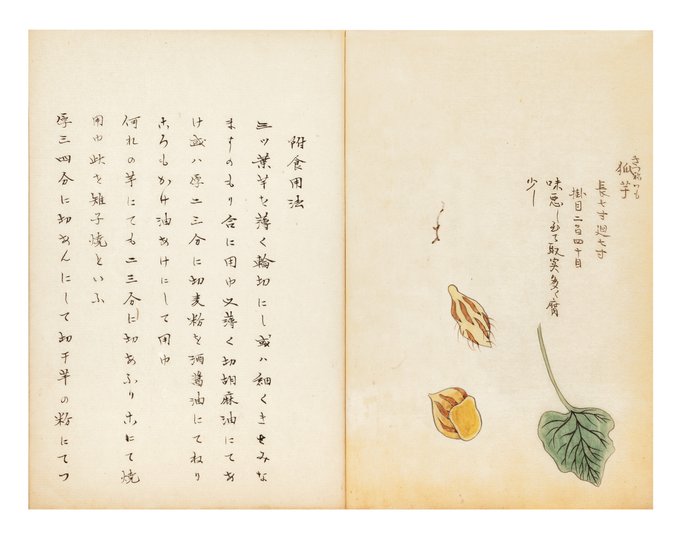 きつねいも
狐芋
長七寸廻七寸
掛目二百四十目
味悪し 取実多く腐
少し
附食用法
三ツ葉芋を薄く輪切にし或ハ細くきざみな
ますのもり合に用ゆ又薄く切胡麻油にてあ
け或ハ厚二三分に切麦粉を酒醤油にてねり
ころもかけ油あけにして用ゆ
何れの芋にても二三分に切あふりこにて焼
用ゆ此を雉子焼といふ
厚三四分に切あんにして切干芋の粉にてつ